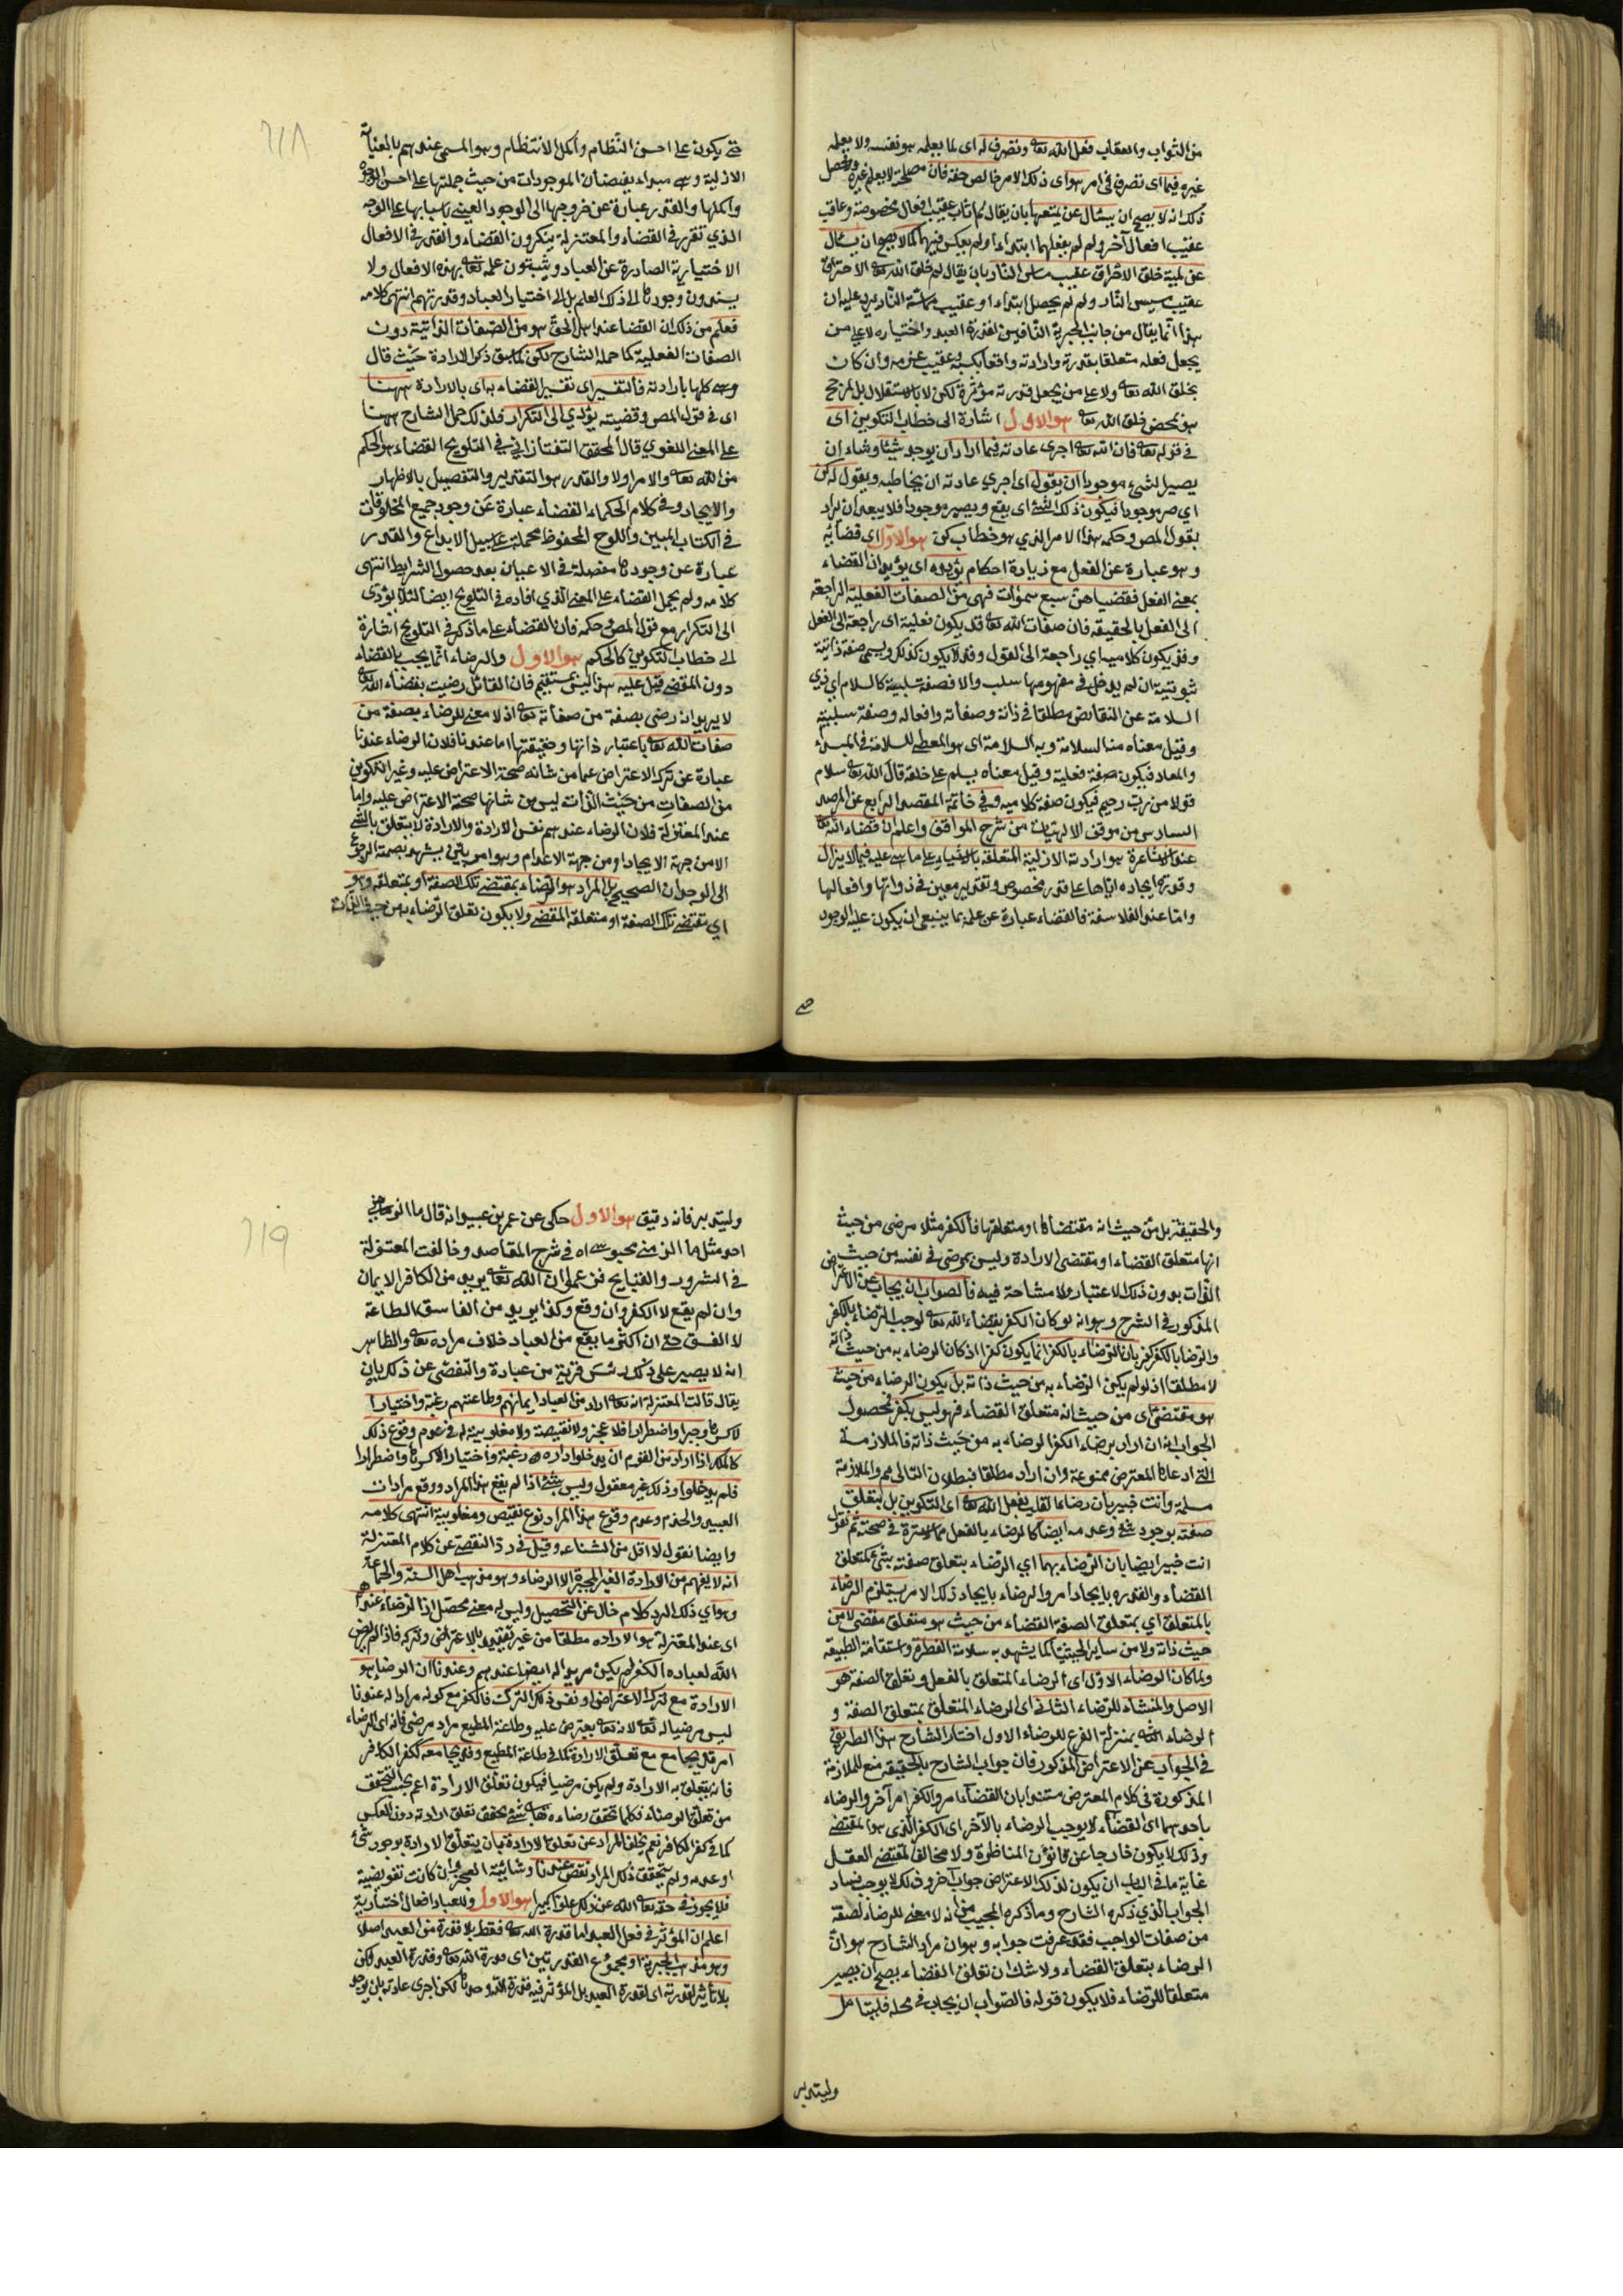 من الثواب والعقاب فعل الله تعا وتصرف له اى لما يعلمه هو نفسه ولا يعلمه
غيره فيما اى تصرف فى امر هو اى ذلك الامر خالص حقه فان مصلحة لا يعلم غيره وتحصل
ذلك انه لا يصح ان يسئال عن لميتهما بان يقال لم اثاب عقيب افعال مخصوصة وعاقب
عقيب افعال آخر ولم لم يفعلهما ابتداء او لم يعكس فيهما كما لا يصح ان يسئال
عن لمية خلق الاحراق عقيب مساس النار بان يقال لم خلق الله تعا الاحتراق
عقيب مسيس النار ولم لم يحصل ابتداء او عقيب مماسة النار يرد عليه ان
هذا انما يقال من جانب الجبرية النافين لقدرة العبد واختياره لا على من
يجعل فعله متعلقا بقدرته وارادته واقعا بكسبه وعقيب عزمه وان كان
بخلق الله تعا ولا على من يجعل قدرته مؤثرة لكن لا بالاستقلال بل بمرجح
هو بمحض خلق الله تعا هو الاول اشارة الى خطاب التكوين اى
فى قوله تعا فان الله تعا اجرى عادته فيما اراد ان يوجد شيئا وشاء ان
يصير الشئ موجودا ان يقول اى اجرى عادته ان يخاطبه ويقول له كن
اى صر موجودا فيكون ذلك الشئ اى يقع ويصير موجودا فلا يبعد ان يراد
بقول المص وحكمه هذا الامر الذي هو خطاب كن هو الاول اى قضائه
وهو عبارة عن الفعل مع زيادة احكام يؤيده اى يؤيد ان القضاء
بمعنى الفعل فقضيهن سبع سموات فهى من الصفات الفعلية الراجعة
الى الفعل بالحقيقة فان صفات الله تعا قد يكون فعلية اى راجعة الى الفعل
وقد يكون كلامية اي راجعة الى القول وقد لا يكون كذلك ويسمى صفة ذاتية
ثبوتية ان لم يدخل فى مفهومها سلب والا فصفة سلبية كالسلام اي ذي
السلامة عن النقائص مطلقا فى ذاته وصفاته وافعاله وصفة سلبية
وقيل معناه منه السلامة وبه السلامة اى هو المعطى للسلامة فى المبدء
والمعاد فيكون صفة فعلية وقيل معناه يسلم على خلقه قال الله تعا سلام
قولا من رب رحيم فيكون صفة كلامية وفى خاتمة المقصد الرابع عن المرصد
السادس من موقف الالهيات من شرح المواقف واعلم ان قضاء الله تعا
عند الاشاعرة هو ارادته الازلية المتعلقة بالاشياء على ما هى عليه فيما لا يزال
وقدره ايجاده اياها على قدر مخصوص وتقدير معين فى ذواتها وافعالها
واما عند الفلاسفة فالقضاء عبارة عن علمه بما ينبغى ان يكون عليه الوجود
حتى
٦١٨
حتى يكون على احسن النظام واكمل الانتظام وهو المسمى عندهم بالعناية
الازلية وهى مبداء لفيضان الموجودات من حيث جملتها على احسن الوجوه
واكملها والقدر عبارة عن خروجها الى الوجود العينى باسبابها على الوجه
الذي تقرر فى القضاء والمعتزلة ينكرون القضاء والقدر فى الافعال
الاختيارية الصادرة عن العباد ويثبتون علمه تعا بهذه الافعال ولا
يسندون وجودها الى ذلك العلم بل الى اختيار العباد وقدرتهم انتهى كلامه
فعلم من ذلك ان القضا عند اهل الحق هو من الصفات الذاتية دون
الصفات الفعلية كما حمله الشارح لكن لما سبق ذكر الارادة حيث قال
وهى كلها بارادته فالتفسير اى تفسير القضاء به اى بالارادة ههنا
اى فى قول المص وقضيته يؤدي الى التكرار فلذلك حمل الشارح ههنا
على المعنى اللغوي قال المحقق التفتازانى فى التلويح القضاء هو الحكم
من الله تعا والامر اولا والقدر هو التقدير والتفصيل بالاظهار
والايجاد وفى كلام الحكماء القضاء عبارة عن وجود جميع المخلوقات
فى الكتاب المبين واللوح المحفوظ مجملة على سبيل الابداع والقدر
عبارة عن وجودها مفصلة فى الاعيان بعد حصول الشرايط انتهى
كلامه ولم يحمل القضاء على المعنى الذي افاده فى التلويح ايضا لئلا يؤدى
الى التكرار مع قول المص وحكمه فان القضاء على ما ذكر فى التلويح اشارة
الى خطاب التكوين كالحكم هو الاول والرضاء انما يجب بالقضاء
دون المقضى قيل عليه هذا ليس بمستقيم فان القائل رضيت بقضاء الله تعا
لا يريد انه رضى بصفة من صفاته تعا اذ لا معنى للرضاء بصفة من
صفات الله تعا باعتبار ذاتها وحقيقتها اما عندنا فلان الرضاء عندنا
عبارة عن ترك الاعتراض عما من شانه صحة الاعتراض عليه وغير التكوين
من الصفات من حيث الذات ليس من شانها صحة الاعتراض عليه واما
عند المعتزلة فلان الرضاء عندهم نفس الارادة والارادة لا يتعلق بالشئ
الا من جهة الايجاد او من جهة الاعدام وهو امر يقينى يشهد بصحته الرجوع
الى الوجدان الصحيح بل المراد هو الرضاء بمقتضى تلك الصفة او بمتعلقه وهو
اي مقتضى تلك الصفة او متعلقه المقضى ولا يكون تعلق الرضاء به من حيث الذات
والحقيقة بل من حيث انه مقتضاها او متعلقها فالكفر مثلا مرضى من حيث
انها متعلق القضاء او مقتضى الارادة وليس بمرضى فى نفسه من حيث
الذات بدون ذلك الاعتبار ولا مشاحة فيه فالصواب ان يجاب عن الاعتراض
المذكور فى الشرح وهو انه لو كان الكفر بقضاء الله تعا لوجب الرضاء بالكفر
والرضا بالكفر كفر بان الرضاء بالكفر انما يكون كفرا اذ كان الرضاء به من حيث ذاته
لا مطلقا اذ لو لم يكن الرضاء به من حيث ذاته بل يكون الرضاء من حيث
هو مقتضى اى من حيث انه متعلق القضاء فهو ليس بكفر فحصول
الجواب انه ان اراد برضاء الكفر الرضاء به من حيث ذاته فالملازمة
التى ادعاها المعترض ممنوعة وان اراد مطلقا فبطلان التالى مم والملازمة
مسلمة وانت خبير بان رضاء القلب بفعل الله تعا اى التكوين بل بتعلق
صفته بوجود شئ وعدمه ايضا كالرضاء بالفعل مما لا سترة فى صحته ثم نقول
انت خبير ايضا بان الرضاء بهما اي الرضاء بتعلق صفته بشئ كتعلق
القضاء والقدرة بايجاد امر والرضاء بايجاد ذلك الامر يستلزم الرضاء
بالمتعلق اي بمتعلق الصفة القضاء من حيث هو متعلق مقضى لا من
حيث ذاته ولا من ساير الحيثيات كما يشهد به سلامة الفطرة واستقامة الطبيعة
ولما كان الرضاء الاول اى الرضاء المتعلق بالفعل وتعلق الصفة هو
الاصل والمنشاء للرضاء الثانى اى الرضاء المتعلق بمتعلق الصفة و
الرضاء الثانى بمنزلة الفرع للرضاء الاول اختار الشارح هذا الطريق
فى الجواب عن الاعتراض المذكور فان جواب الشارح بالحقيقة منع للملازمة
المذكورة فى كلام المعترض مستندا بان القضاء امر والكفر امر آخر والرضاء
باحدهما اى القضاء لا يوجب الرضاء بالآخر اى الكفر الذى هو المقتضى
وذلك لا يكون خارجا عن قانون المناظرة ولا مخالف لمقتضى العقل
غاية ما فى الباب ان يكون لذلك الاعتراض جواب آخر وذلك لا يوجب فساد
الجواب الذي ذكره الشارح وما ذكره المجيب من انه لا معنى للرضاء لصفة
من صفات الواجب فقد عرفت جوابه وهو ان مراد الشارح هو ان
الرضاء بتعلق القضاء ولا شك ان تعلق القضاء يصح ان يصير
متعلقا للرضاء فلا يكون قوله فالصواب ان يجاب فى محله فليتامل
وليتدبر
٦١٩
وليتدبر فانه دقيق هو الاول حكى عن عمر بن عبيد انه قال ما الزمنى
احد مثل ما الزمنى مجوسى اه فى شرح المقاصد وخالفت المعتزلة
فى الشرور والقبايح فزعموا ان الله تعا يريد من الكافر الايمان
وان لم يقع لا الكفر وان وقع وكذا يريد من الفاسق الطاعة
لا الفسق حتى ان اكثر ما يقع من العباد خلاف مراده تعا والظاهر
انه لا يصبر على ذلك رئيس قرية من عبادة والتفصى عن ذلك بان
يقال قالت المعتزلة انه تعا اراد من العباد ايمانهم وطاعتهم رغبة واختيارا
لا كرها وجبرا واضطرارا فلا عجز ولا نقيصة ولا مغلوبية له فى عدم وقوع ذلك
كالملك اذا اراد من القوم ان يدخلوا داره رغبة واختيارا لا كرها واضطرارا
فلم يدخلوا وذلك غير معقول وليس بشئ اذا لم يقع هذا المراد ووقع مرادات
العبيد والخدم وعدم وقوع هذا المراد نوع نقيص ومغلوبية انتهى كلامه
وايضا نقول لا اقل من الشناعه وقيل فى رد التفصى عن كلام المعتزلة
انه لا يفهم من الارادة الغير المجبرة الا الرضاء وهو مذهب اهل السنة والجماعة
وهو اي ذلك الرد كلام خال عن التحصيل وليس له معنى محصل اذا الرضاء عندهم
اى عند المعتزلة هو الاراده مطلقا من غير تقييد بالاعتراض وتركه فاذا لم يرض
الله لعباده الكفر لم يكن مريدا له ايضا عندهم وعندنا ان الرضا هو
الارادة مع ترك الاعتراض او نفس ذلك الترك فالكفر مع كونه مرادا له عندنا
ليس مرضيا له تعا لانه تعا يعترض عليه وطاعة المطيع مراد مرضى فانه اى الرضاء
امر قد يجامع مع تعلق الارادة كما فى طاعة المطيع وقد لا يجامعه ككفر الكافر
فانه يتعلق به الارادة ولم يكن مرضيا فيكون تعلق الارادة اعم بحسب التحقق
من تعلق الرضاء فكلما تحقق رضاءه تعا بشئ يحقق تعلق ارادته دون العكس
كما فى كفر الكافر نعم تخلف المراد عن تعلق الارادة بان يتعلق الارادة بوجود شئ
او عدمه ولم يتحقق ذلك المراد نقص عندنا وشائبة العجز وان كانت تفويضية
فلا يجوز فى حقه تعا الله عن ذلك علوا كبيرا هو الاول وللعباد افعال اختيارية
اعلم ان المؤثر فى فعل العبد اما قدرة الله تعا فقط بلا قدرة من العبد اصلا
وهو مذهب الجبرية او مجموع القدرتين اى قدرة الله تعا وقدرة العبد لكن
بلا تأثير لقدرته اى لقدرة العبد بل المؤثر فيه قدرة الله وحدها لكن اجرى عادته بان يوجد